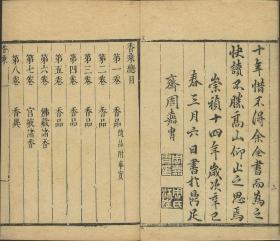 十年惜不得余全書而為之
快讀不勝高山仰止之思焉
崇禎十四年歲次辛巳
春三月六日書於鼎足
齋周嘉胄
香乘總目
第一卷 香品 隨品附事實
第二卷 香品
第三卷 香品
第四卷 香品
第五卷 香品
第六卷 佛藏諸香
第七卷 宮掖諸香
第八卷 香異
香乘